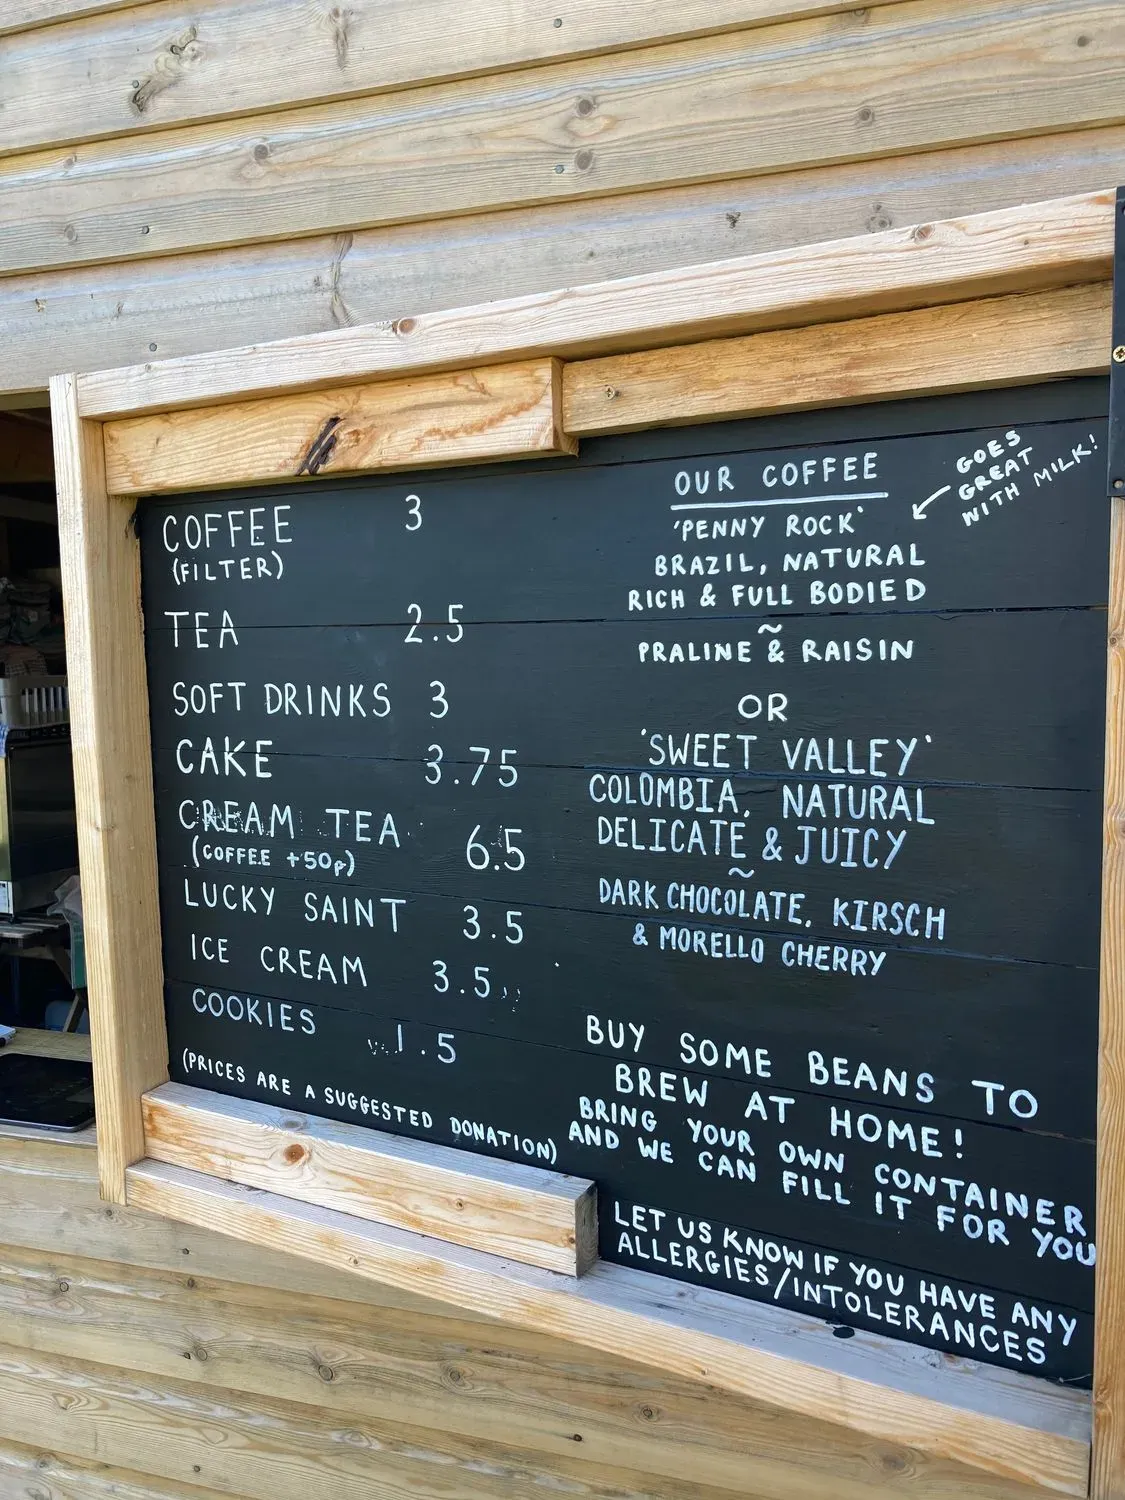 COFFEE 3
(FILTER)
TEA 2.5
SOFT DRINKS 3
CAKE 3.75
CREAM TEA 6.5
(COFFEE +50p)
LUCKY SAINT 3.5
ICE CREAM 3.5
COOKIES 1.5
(PRICES ARE A SUGGESTED DONATION)
OUR COFFEE
'PENNY ROCK'
BRAZIL, NATURAL
RICH & FULL BODIED
~
PRALINE & RAISIN
GOES
GREAT
WITH MILK!
OR
'SWEET VALLEY'
COLOMBIA, NATURAL
DELICATE & JUICY
~
DARK CHOCOLATE, KIRSCH
& MORELLO CHERRY
BUY SOME BEANS TO
BREW AT HOME!
BRING YOUR OWN CONTAINER
AND WE CAN FILL IT FOR YOU
LET US KNOW IF YOU HAVE ANY
ALLERGIES/INTOLERANCES